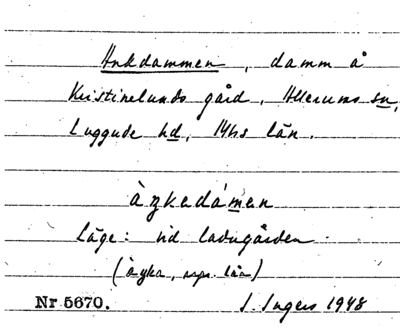 Ankdammen, damm å
Kristinelunds gård, Allerums sn,
Luggude hd, Mhs län.
àŋkadámen
Läge: vid ladugården
(àŋka, sms. län)
Nr 5670. I. Ingers 1948